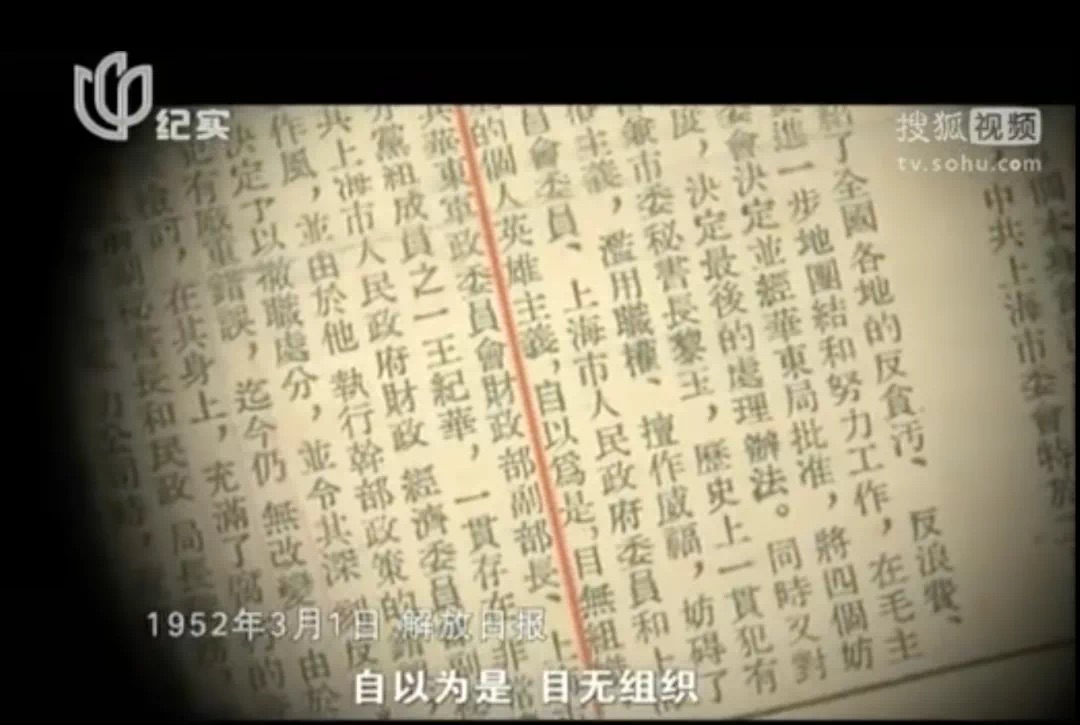 纪实
搜狐视频
tv.sohu.com
中共上海市委會特於
了全國各地的反貪污、反浪費、
進一步地團結和努力工作，在毛主
會決定並經華東局批准，將四個妨
，決定最後的處理辦法。同時又對
兼市委秘書長黎玉，歷史上一貫犯有
主義，濫用職權、擅作威福，妨碍了
會委員、上海市人民政府委員和上
的個人英雄主義，自以爲是，目無組
華東軍政委員會財政部副部長、上
黨組成員之一王紀華，一貫存在非常
共上海市人民政府財政經濟委員
作風，並由於他執行幹部政策的
決定予以撤職處分，並令其深
犯有嚴重錯誤，迄今仍無改變
，在其身上，充滿了腐
副秘書長和民政局長
1952年3月1日 解放日报
自以为是 目无组织